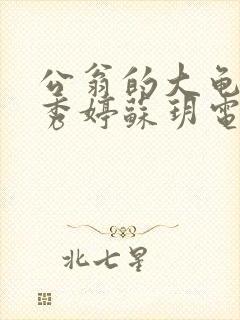 公翁的大龟
秀婷蘇玥電
北七星